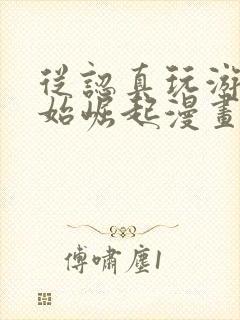 從認真玩游
始崛起漫畫
傅嘯塵1